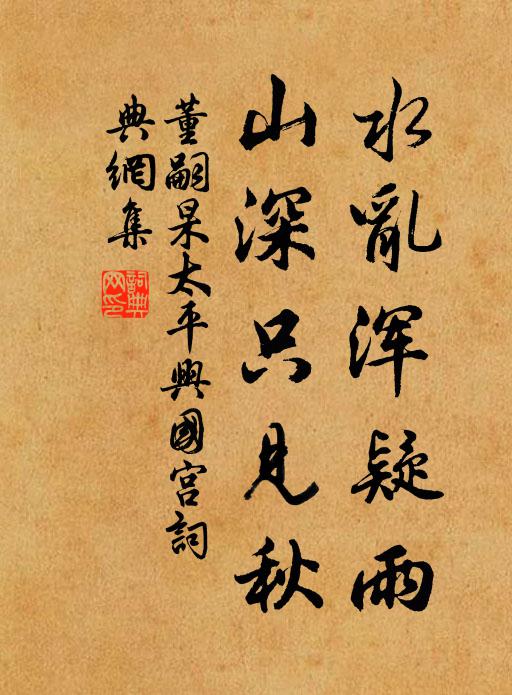 水亂浑疑雨
山深只见秋
董嗣杲太平興國宫詞
典網集
詞典网印